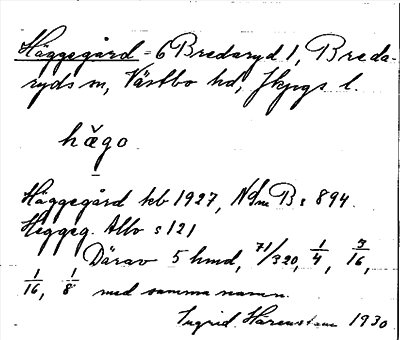 Häggegård = 6 Bredaryd 1, Breda-
ryds sn, Västbo hd, Jkpgs l.
hǎ̱go
Häggegård kb 1927, NBs 894.
Heggeg. Allv s 121
Därav 5 hmd, 71/320, 1/4, 3/16,
1/16, 1/8 med samma namn.
Ingrid Härenstam 1930